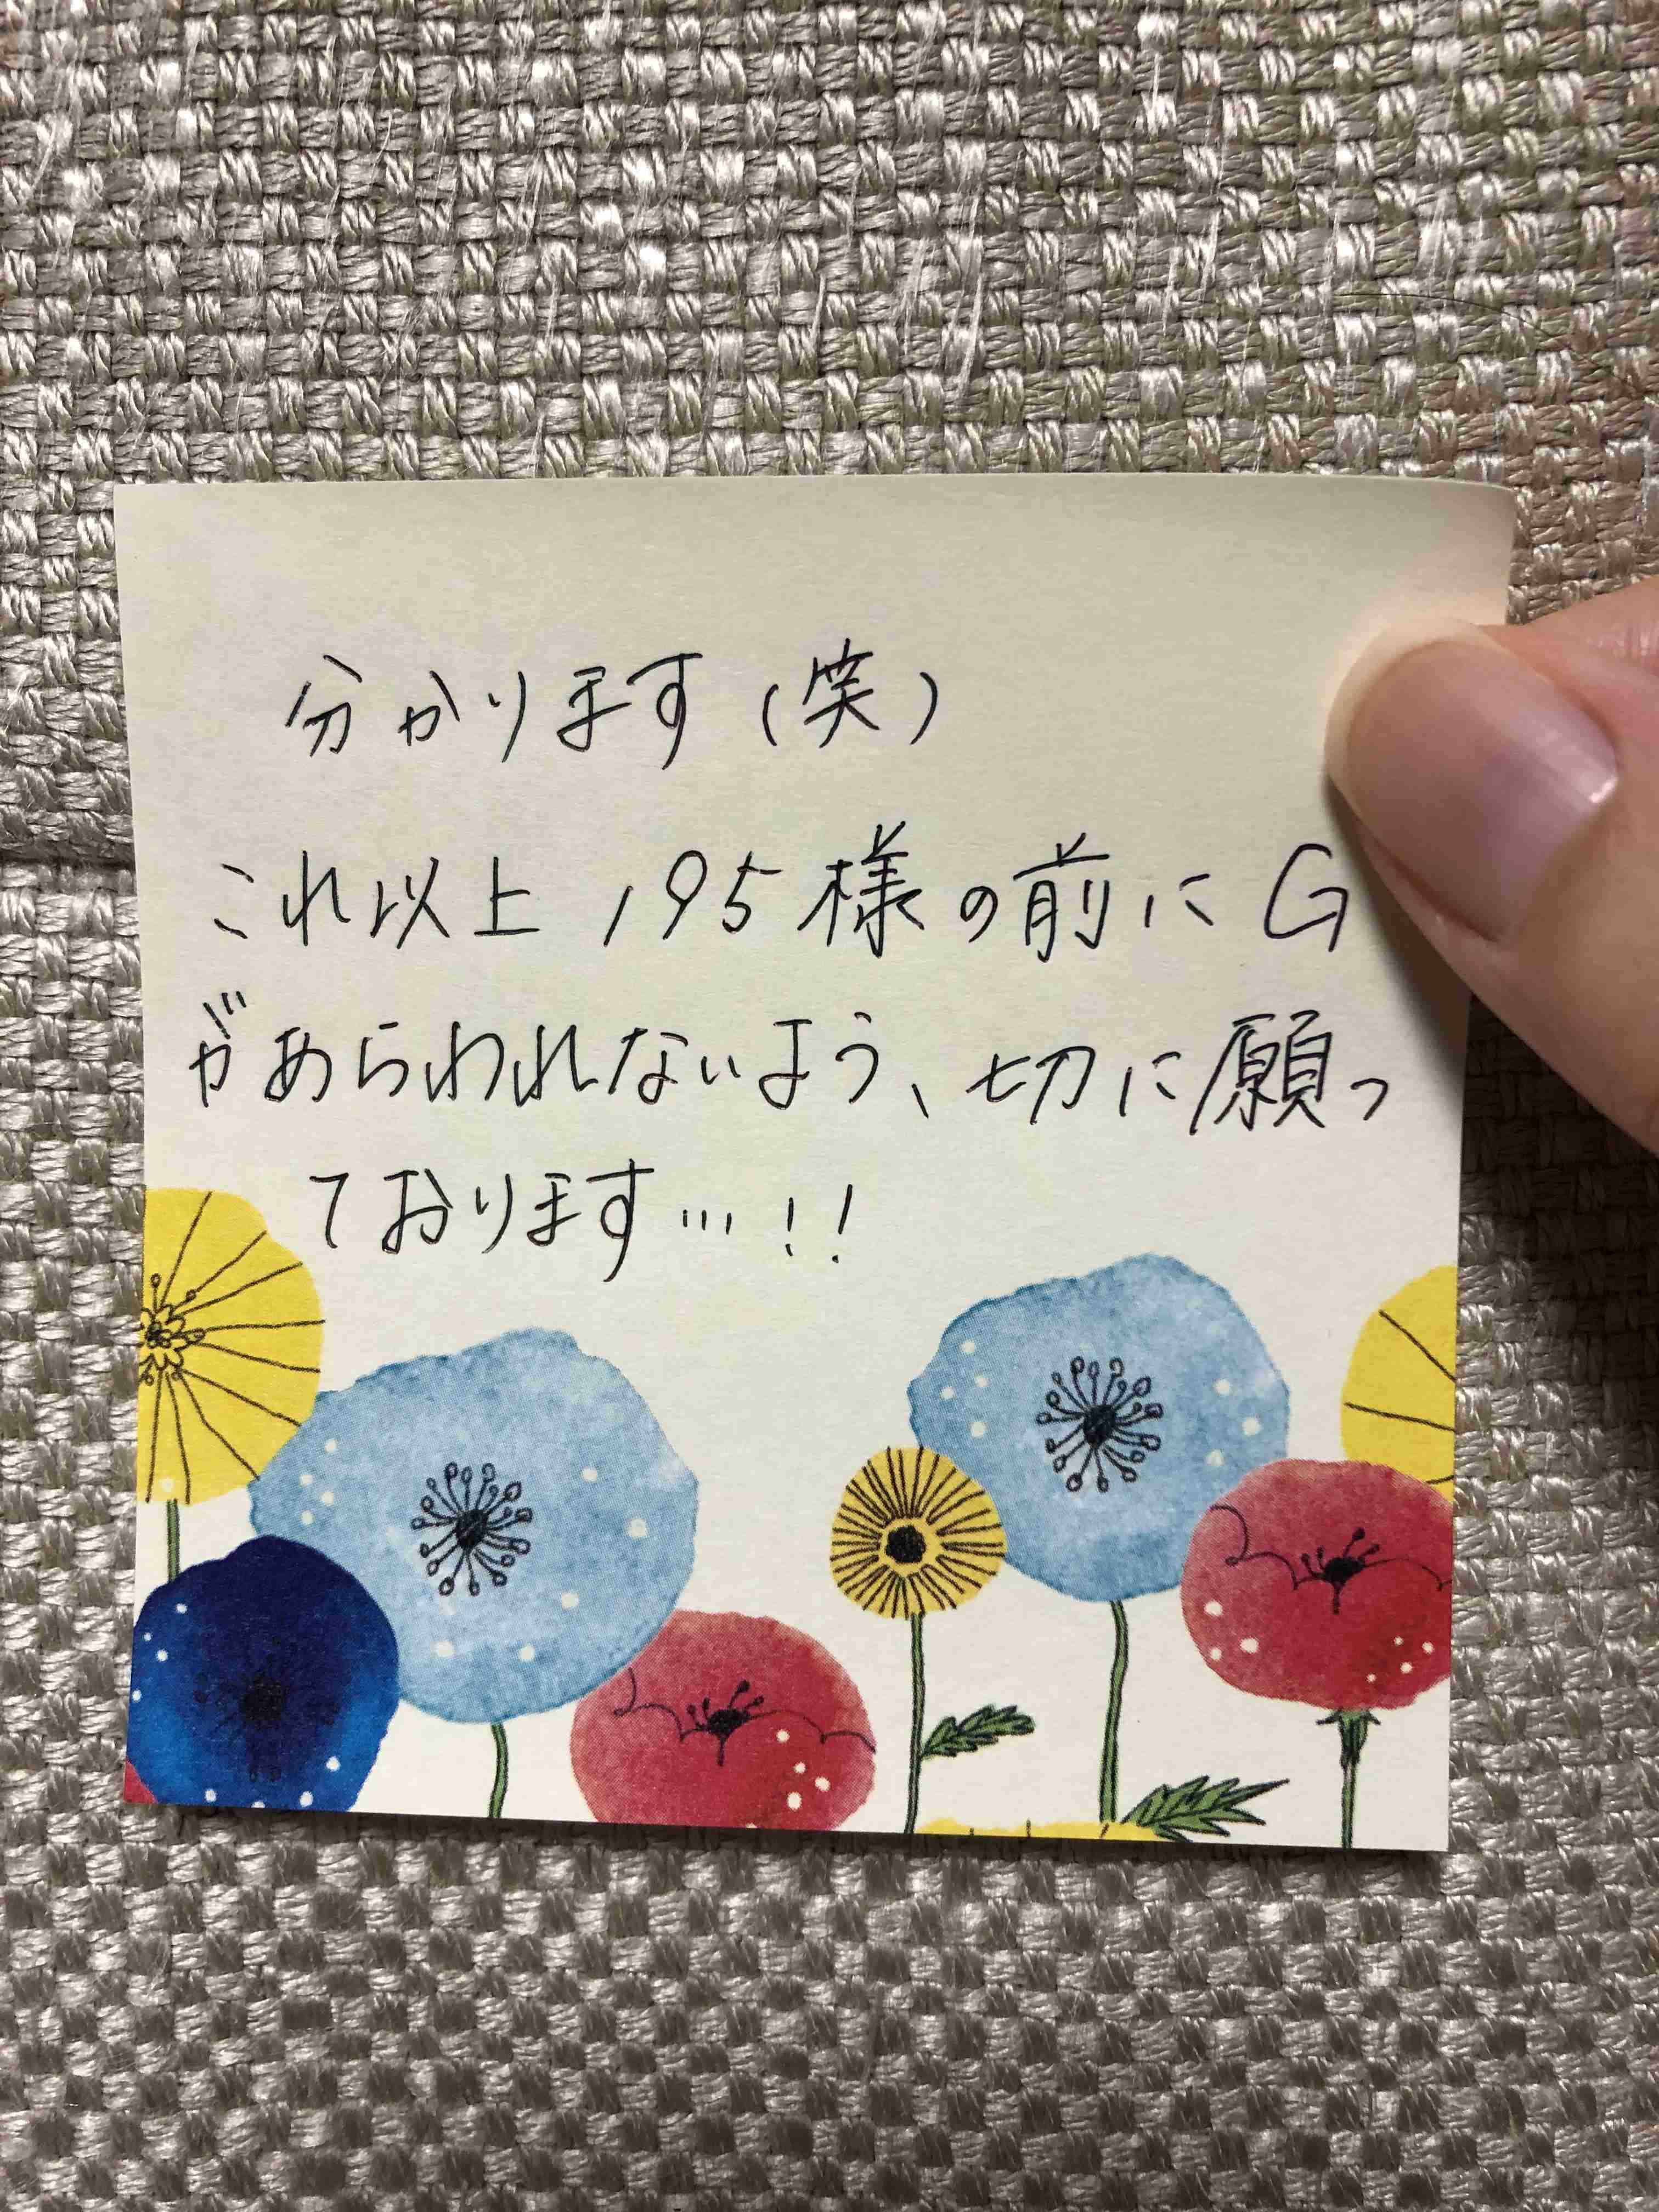 分かります(笑)
これ以上195様の前にG
があらわれないよう、切に願っ
ております…!!